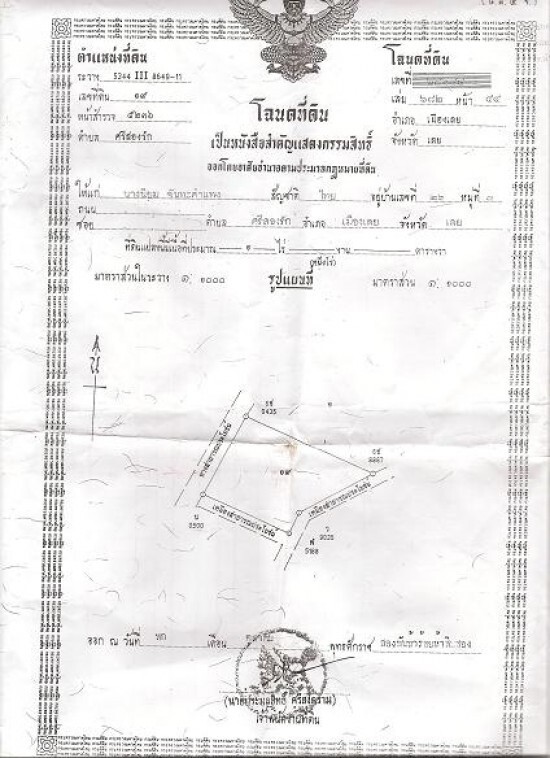 (น.ส. ๔ จ.)
ตำแหน่งที่ดิน
ระวาง 5344 III 8648-11
เลขที่ดิน ๑๙
หน้าสำรวจ ๕๒๓๖
ตำบล ศรีสองรัก
โฉนดที่ดิน
เลขที่
เล่ม ๖๙๒ หน้า ๔๔
อำเภอ เมืองเลย
จังหวัด เลย
โฉนดที่ดิน
เป็นหนังสือสำคัญแสดงกรรมสิทธิ์
ออกโดยอาศัยอำนาจตามประมวลกฎหมายที่ดิน
ให้แก่ นางนิยม จันทะคำแพง สัญชาติ ไทย อยู่บ้านเลขที่ ๒๖ หมู่ที่ ๓
ถนน
ซอย ตำบล ศรีสองรัก อำเภอ เมืองเลย จังหวัด เลย
ที่ดินแปลงนี้มีเนื้อที่ประมาณ ๑ ไร่ งาน ตารางวา
(หนึ่งไร่)
มาตราส่วนในระวาง ๑: ๑๐๐๐ รูปแผนที่ มาตราส่วน ๑: ๑๐๐๐
น
๑๙
ทางสาธารณประโยชน์
เหมืองสาธารณประโยชน์
เหมืองสาธารณประโยชน์
ออก ณ วันที่ หก เดือน ตุลาคม พุทธศักราช
(นายประมูลสิทธิ์ ศรีสงคราม)
เจ้าพนักงานที่ดิน